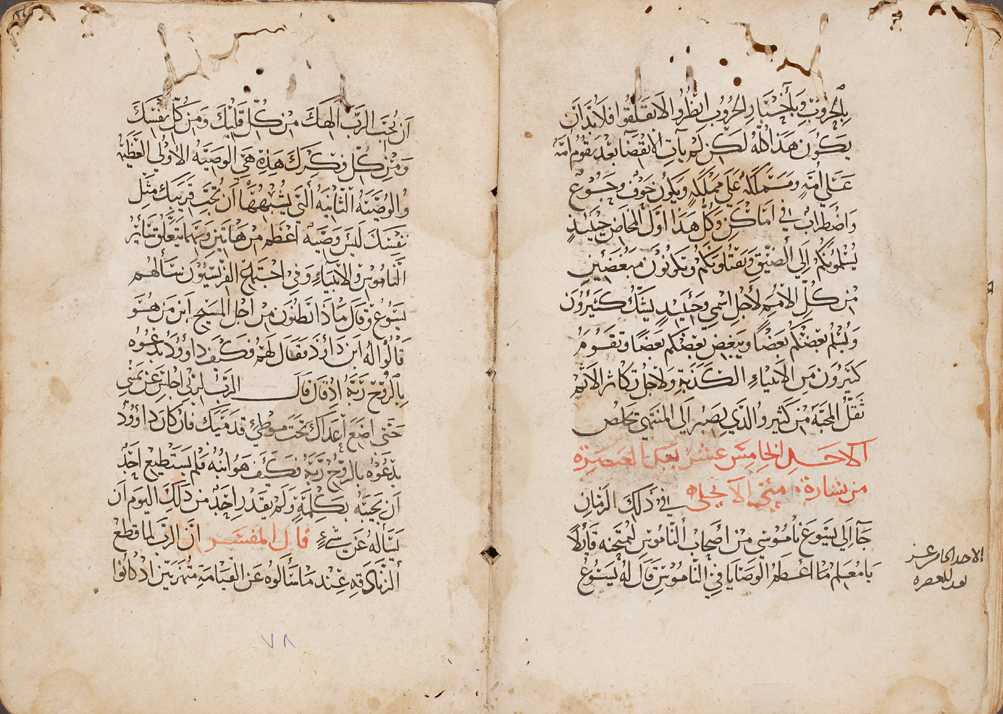 بالحروب وبأخبار الحروب انظروا لا تقلقوا فلا بد ان
يكون هذا كله لكن لم يات الانقضا بعد يقوم امه
على امه ومملكه على مملكه ويكون خوف وجوع
واضطراب في اماكن وكل هذا اول المخاض حينيد
يسلمونكم الي الضيق ويقتلونكم وتكونون مبغضين
من كل الامم لاجل اسمي وحينيد يشك كثيرون
ويسلم بعضكم بعضا ويبغض بعضكم بعضا وتقوم
كثيرون من الانبياء الكدبه ولاجل تكاثر الاثم
تقل المحبة من كثير والذي يصبر الي المنتهي يخلص
الاحد الخامس عشر بعد العنصره
من بشارة متي الانجيلي في ذلك الزمان
جا الي يسوع ناموسي من أصحاب الناموس ليمتحنه قايلا
يا معلم ما اعظم الوصايا في الناموس قال له يسوع
الاحد الخامس عشر
بعد العنصره
أن تحب الرب الهك من كل قلبك ومن كل نفسك
ومن كل فكرك هذه هي الوصيه الاولي العظيمه
والوصيه الثانيه التي يشبهها أن تحب قريبك مثل
نفسك ليس وصيه أعظم من هاتين وبهما يتعلق سائر
الناموس والانبياء وفي اجتماع الفريسيون سألهم
يسوع وقال ماذا تظنون من اجل المسيح ابن من هو
قالوا له ابن داوود فقال لهم وكيف داوود يدعوه
بالروح ربه اذ قال قال الرب لربي اجلس عن يميني
حتى اضع اعداك تحت موطئ قدميك فان كان داوود
يدعوه بالروح ربه فكيف هو ابنه فلم يستطيع احد
أن يجيبه بكلمة ولم يقدر احد من ذلك اليوم ان
يسأله عن شيء قال المفسر ان الرب لما قطع
الزنادقه عندما سألوه عن القيامة مبهرين اذ كانوا
٧٨